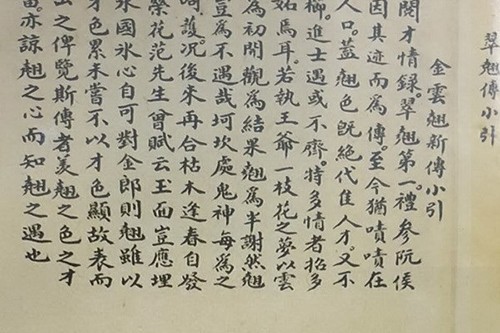 翠翹傳小引
金雲翹新傳小引
閱才情錄翠翹第一。禮參阮侯
因其迹而為傳。至今猶嘖嘖在
人口。蓋翹色既絕代隹人才。又不
櫛。進士遇或不齊。特多情者招多
妬焉耳。若執王爺一枝花之夢以雲
為初開觀為結果翹為半謝然翹
豈為不遇哉坷坎處鬼神每為之
護。况後來再合枯木逢春自發
繁花范先生曾賦云玉面豈應埋
國氷心自可對金郎則翹雖以
才色累未嘗不以才色顯故表而
出之俾覽斯傳者羡翹之色之才
亦諒翹之心而知翹之遇也